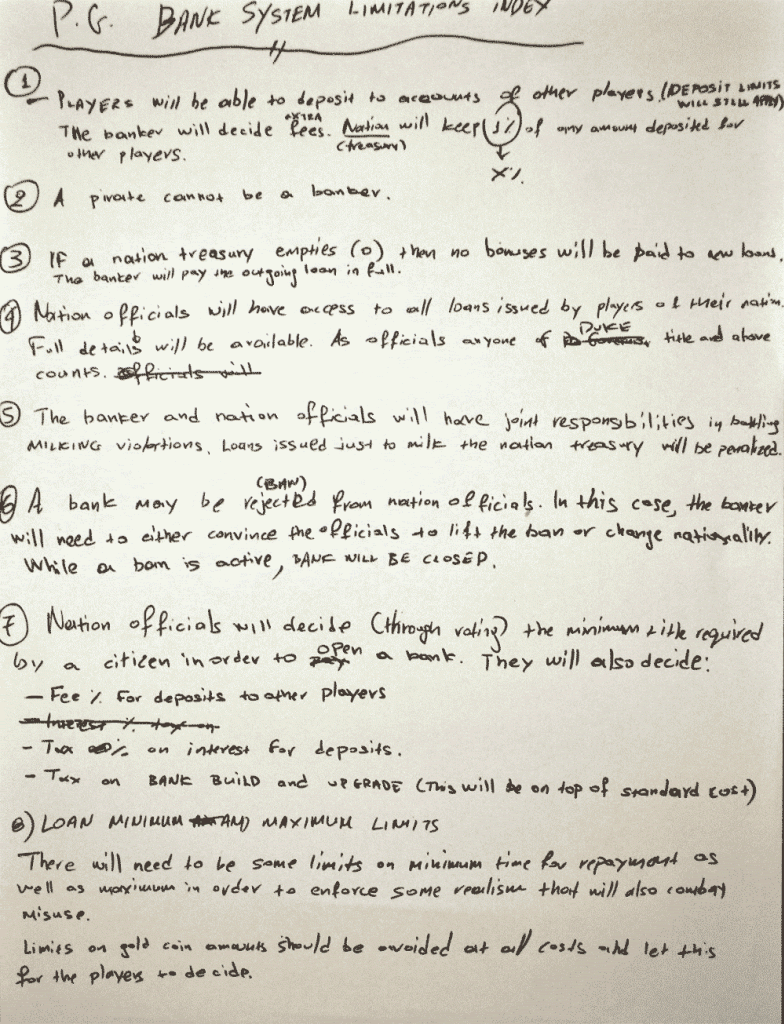 P.G. BANK SYSTEM LIMITATIONS INDEX
① PLAYERS will be able to deposit to accounts of other players (DEPOSIT LIMITS
WILL STILL APPLY)
The banker will decide EXTRA fees. Nation will keep 1% of any amount deposited for
(treasury)
other players.
X%
② A pirate cannot be a banker.
③ If a nation treasury empties (0) then no bonuses will be paid to new loans.
The banker will pay the outgoing loan in full.
④ Nation officials will have access to all loans issued by players of their nation.
Full details will be available. As officials anyone of DUKE title and above
counts. officials will
⑤ The banker and nation officials will have joint responsibilities in battling
MILKING violations. Loans issued just to milk the nation treasury will be penalized.
(BAN)
⑥ A bank may be rejected from nation officials. In this case, the banker
will need to either convince the officials to lift the ban or change nationality.
While a ban is active, BANK WILL BE CLOSED.
⑦ Nation officials will decide (through voting) the minimum title required
by a citizen in order to open a bank. They will also decide:
– Fee % for deposits to other players
– Interest % tax on
– Tax % on interest for deposits.
– Tax on BANK BUILD and UPGRADE (This will be on top of standard cost)
8) LOAN MINIMUM AND MAXIMUM LIMITS
There will need to be some limits on minimum time for repayment as
well as maximum in order to enforce some realism that will also combat
misuse.
Limits on gold coin amounts should be avoided at all costs and let this
for the players to decide.